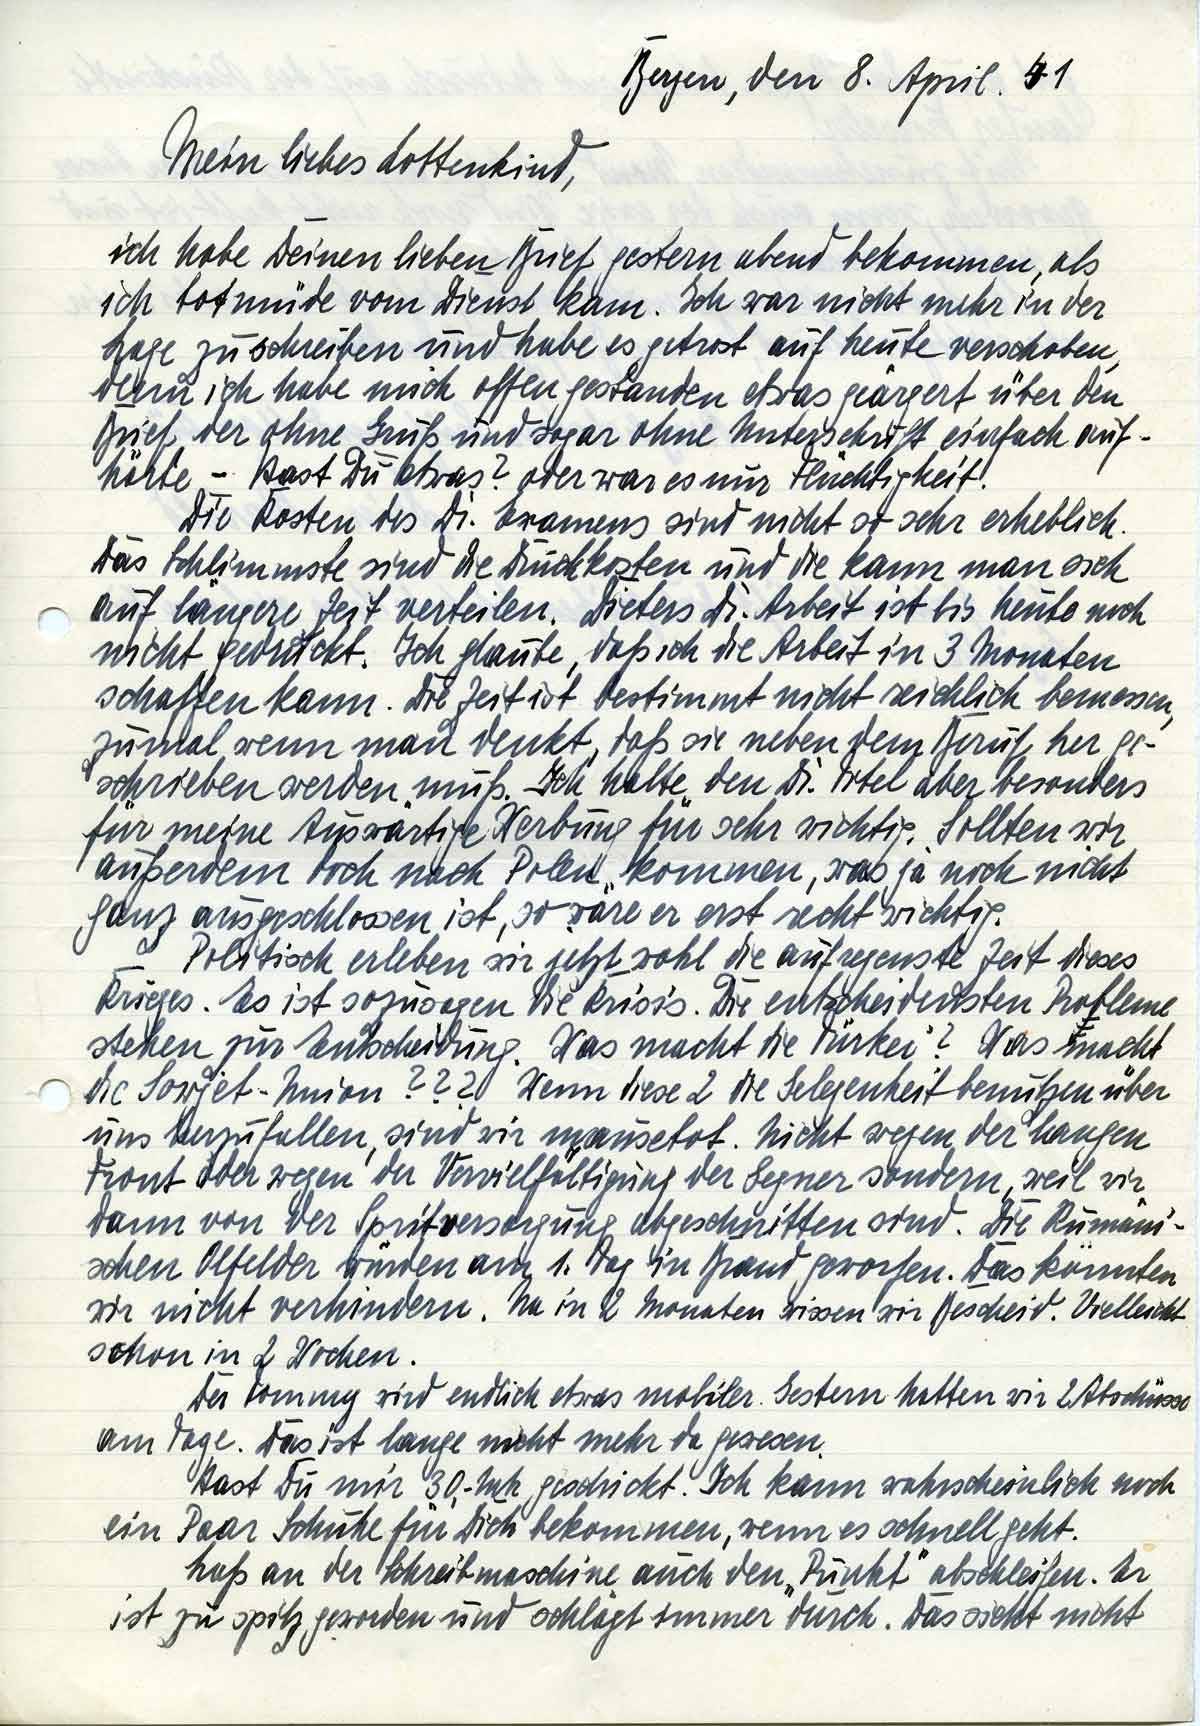 Bergen, den 8. April. 41
Mein liebes Lottenkind,
ich habe Deinen lieben Brief gestern abend bekommen, als
ich totmüde vom Dienst kam. Ich war nicht mehr in der
Lage zu schreiben und habe es getrost auf heute verschoben,
denn ich habe mich offen gestanden etwas geärgert über den
Brief, der ohne Gruß und sogar ohne Unterschrift einfach auf-
hörte - Hast Du etwas? oder war es nur Flüchtigkeit.
Die Kosten des Di. Examens sind nicht so sehr erheblich.
Das Schlimmste sind die Druckkosten und die kann man sich
auf längere Zeit verteilen. Dieters Di. Arbeit ist bis heute noch
nicht gedruckt. Ich glaube, daß ich die Arbeit in 3 Monaten
schaffen kann. Die Zeit ist bestimmt nicht reichlich bemessen,
zumal wenn man denkt, daß sie neben dem Beruf her ge-
schrieben werden muß. Ich halte den Di. Titel aber besonders
für meine "Auswärtige Werbung" für sehr wichtig. Sollten wir
außerdem doch nach "Polen" kommen, was ja noch nicht
ganz ausgeschlossen ist, so wäre er erst recht wichtig.
Politisch erleben wir jetzt wohl die aufregenste Zeit dieses
Krieges. Es ist sozusagen die Krisis. Die entscheidensten Probleme
stehen zur Entscheidung. Was macht die Türkei? Was macht
die Sowjet-Union ??? Wenn diese 2 die Gelegenheit benutzen über
uns herzufallen, sind wir mausetot. Nicht wegen der langen
Front oder wegen der Vervielfältigung der Gegner sondern, weil wir
dann von der Spritversorgung abgeschnitten sind. Die Rumäni-
schen Ölfelder würden am 1. Tag in Brand geworfen. Das könnten
wir nicht verhindern. Na in 2 Monaten wissen wir Bescheid. Vielleicht
schon in 2 Wochen.
Der Tommy wird endlich etwas mobiler. Gestern hatten wir 2 Abschüsse
am Tage. Das ist lange nicht mehr da gewesen.
Hast Du mir 30,- Mk geschickt. Ich kann wahrscheinlich noch
ein Paar Schuhe für Dich bekommen, wenn es schnell geht.
Laß an der Schreibmaschine auch den "Punkt" abschleifen. Er
ist zu spitz geworden und schlägt immer durch. Das sieht nicht